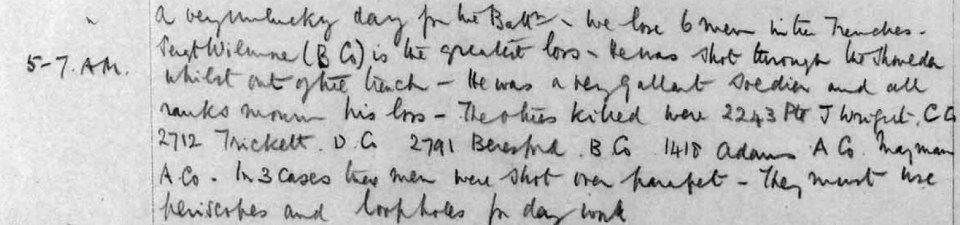 " A very unlucky day for the Battn - We lose 6 men in the Trenches -
5-7. AM. Sergt Wilmore (B Co) is the greatest loss - He was shot through the shoulder
whilst out of the trench - He was a very gallant soldier and all
ranks mourn his loss - The others killed were 2243 Pte J Wright, C Co
2712 Trickett. D Co 2791 Beresford. B Co 1418 Adams A Co. Mayman
A Co. In 3 cases these men were shot over parapet - They must use
periscopes and loopholes for day work